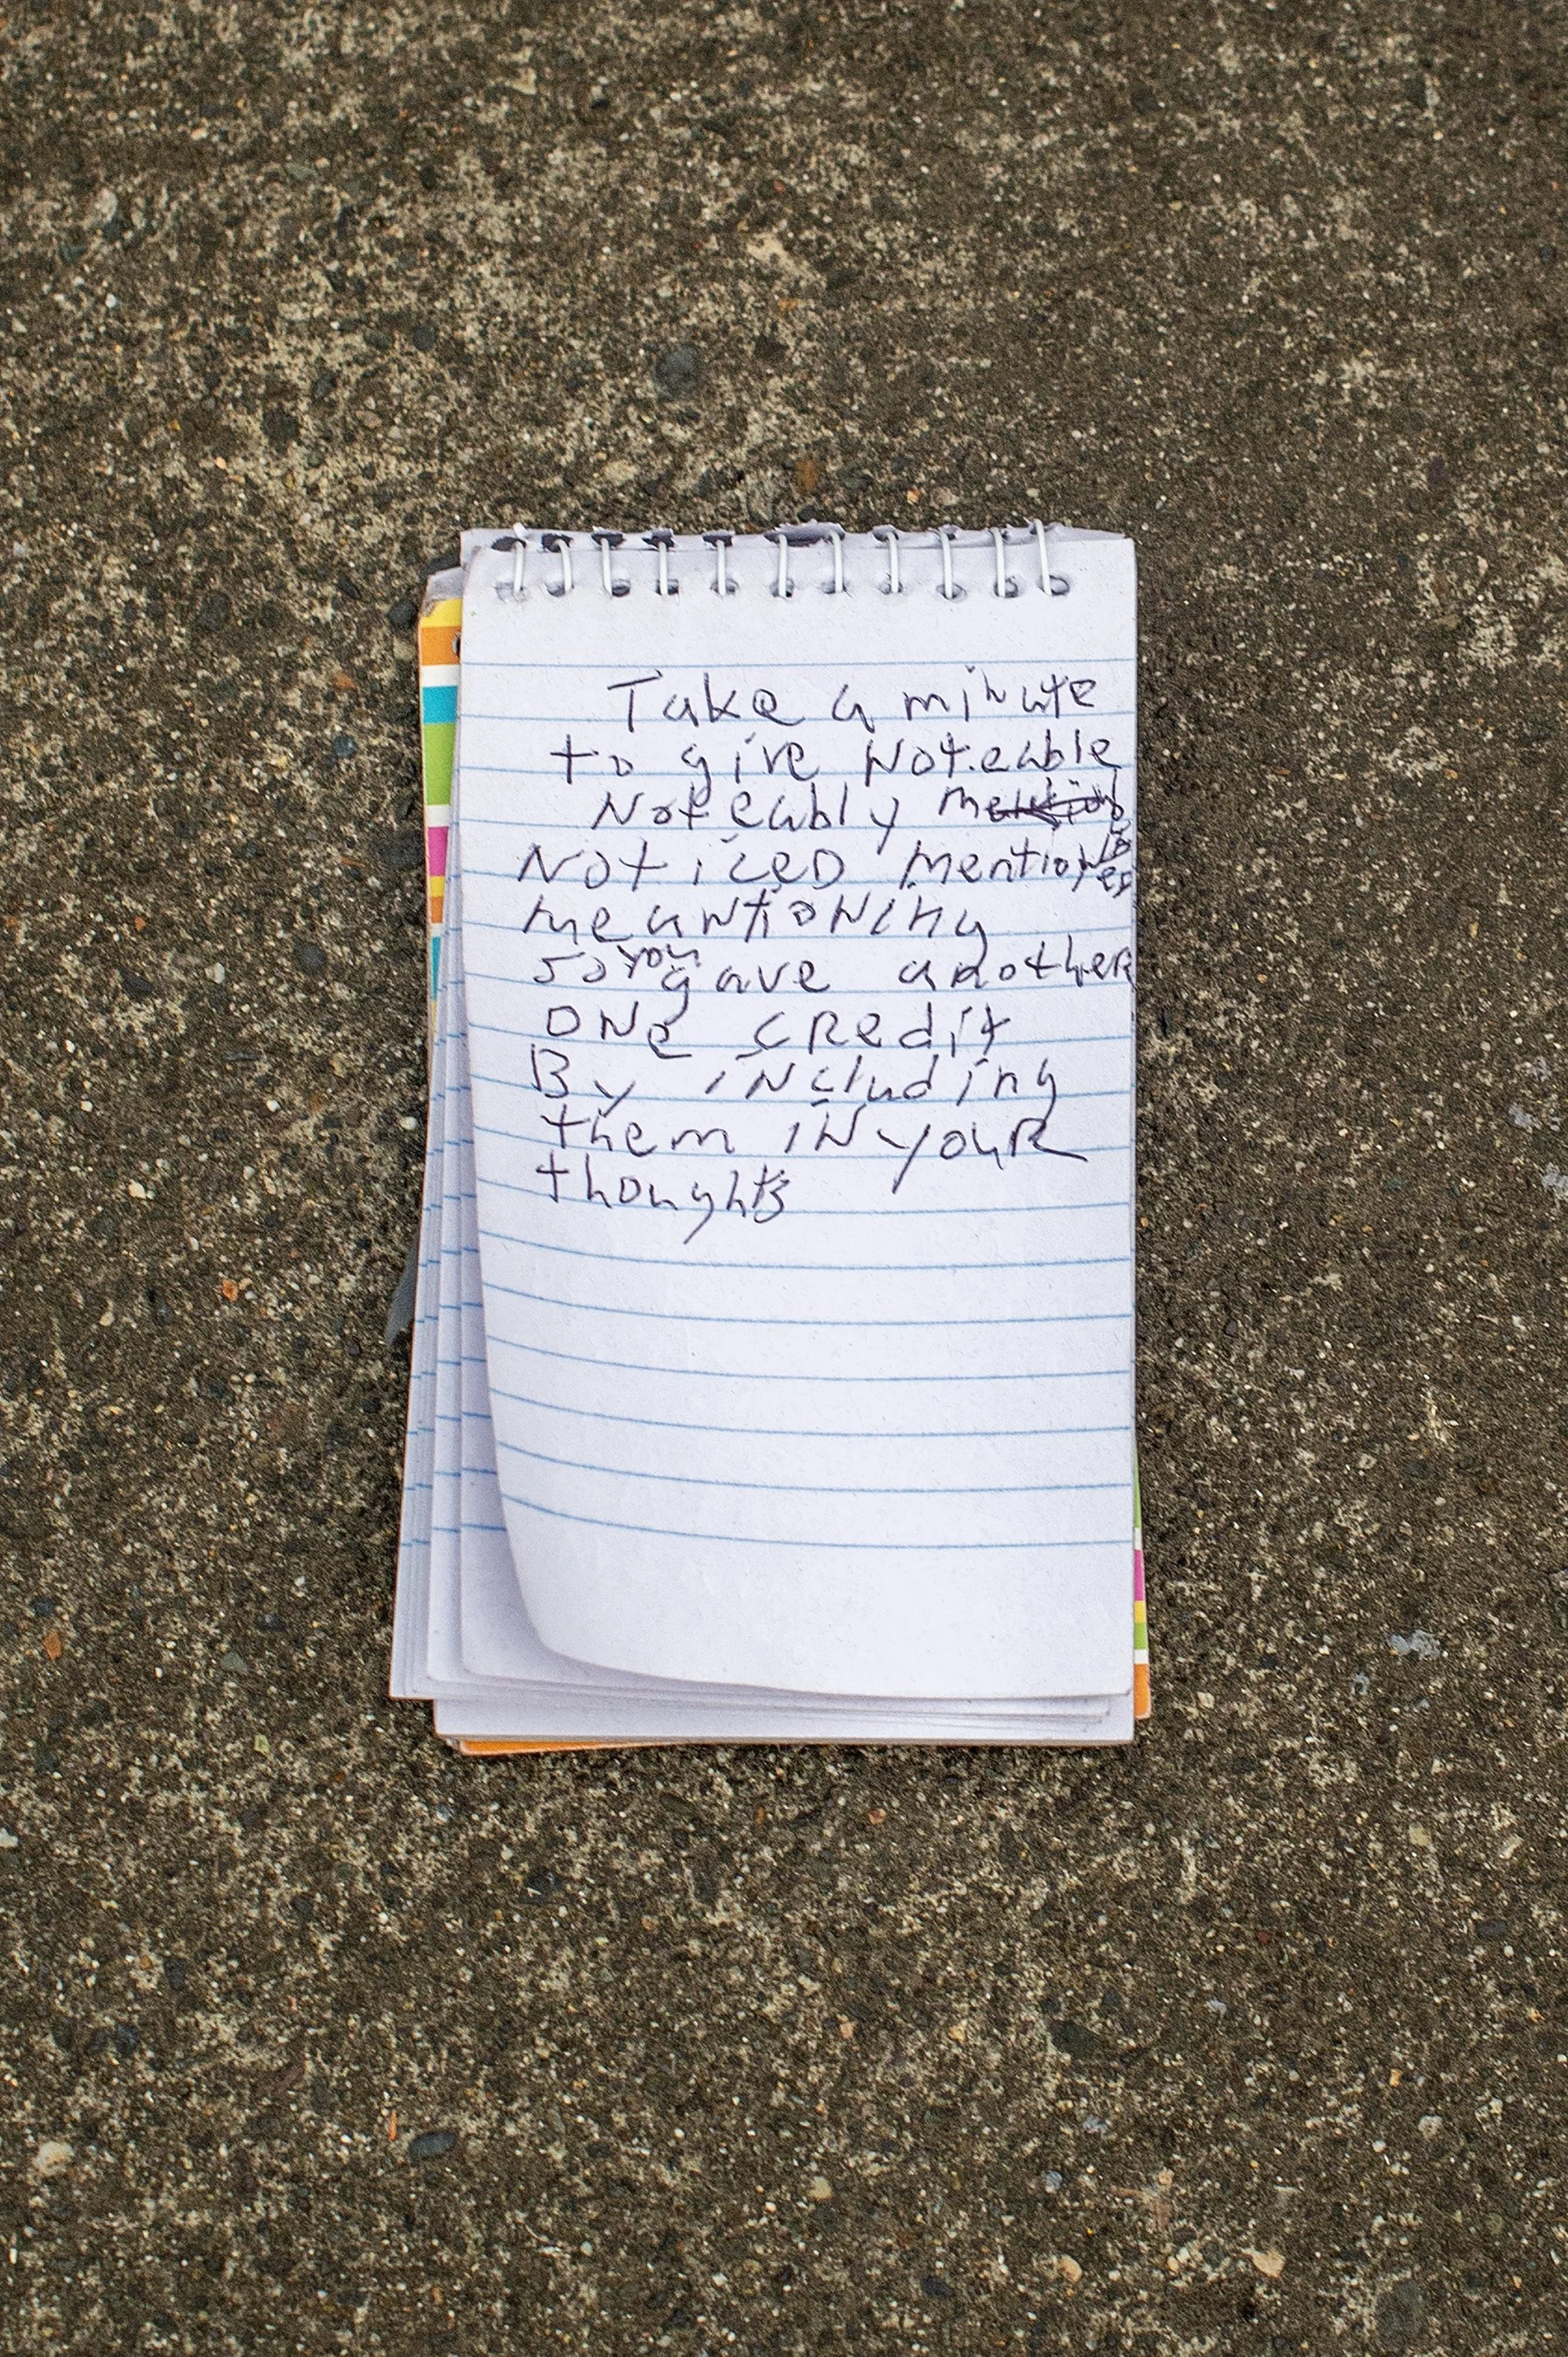 Take a minute
to give Noteable
Noteably
NoticeD mention
meantioNing
so you gave another
ONe cRedit
By iNcluding
them iN youR
thoughts